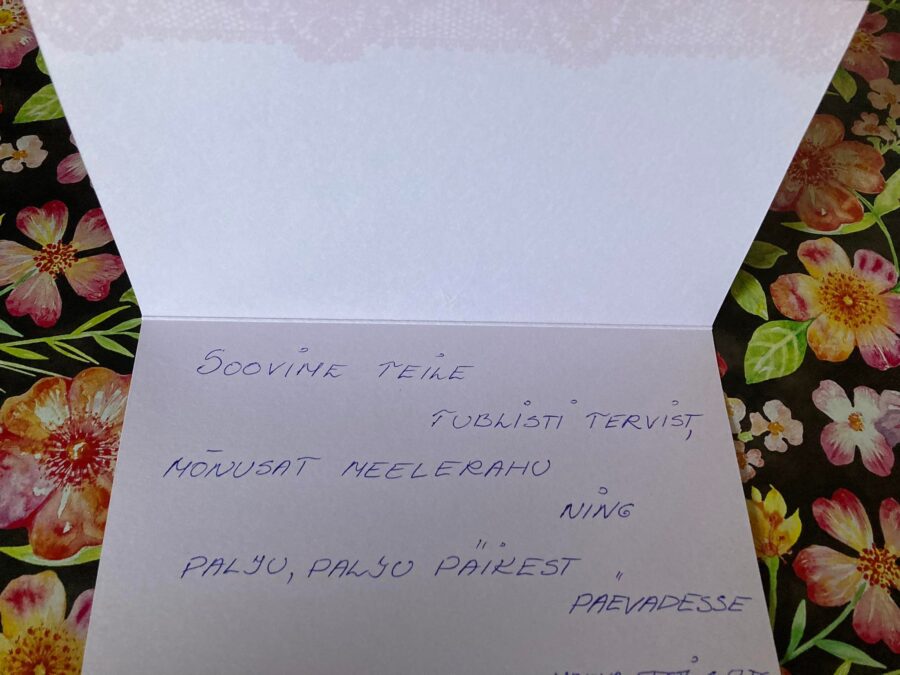 SOOVIME TEILE
TUBLISTI TERVIST,
MÕNUSAT MEELERAHU
NING
PALJU, PALJU PÄIKEST
PÄEVADESSE